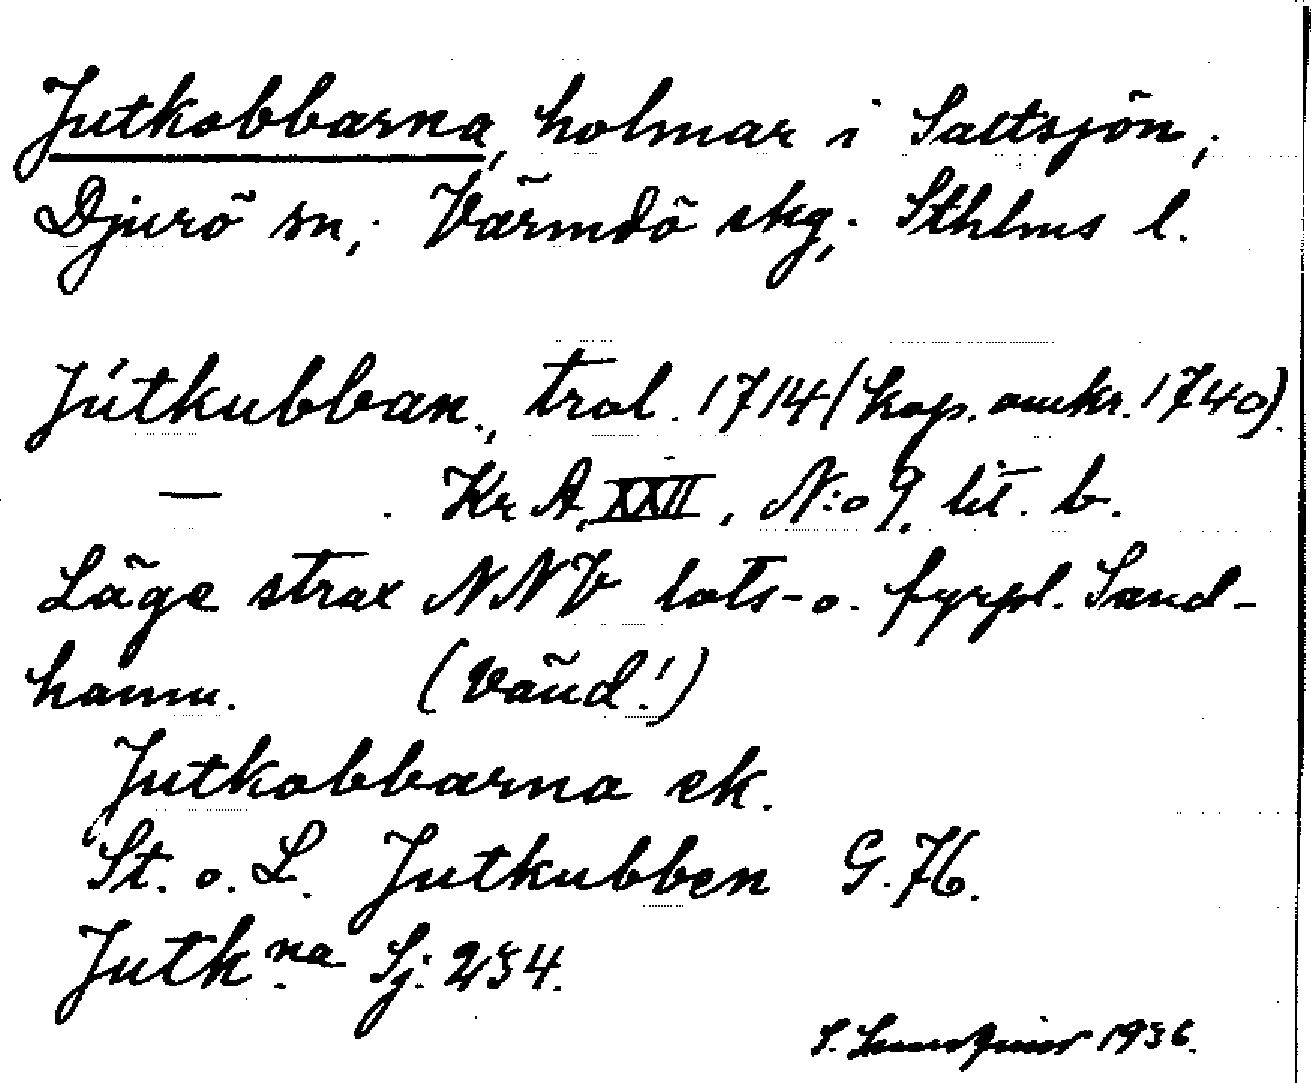 Jutkobbarna, holmar i Saltsjön,
Djurö sn, Värmdö skg, Sthlms l.
Jútkubban, trol. 1714 (kop. omkr. 1740).
— Kr A, XXII, N:o 9, lit. b.
Läge strax NNV lots- o. fyrpl. Sand-
hamn. (Vänd!)
Jutkobbarna ek.
St. o. L. Jutkubben G. K.
Jutkna Sj: 234.
S. 1936.